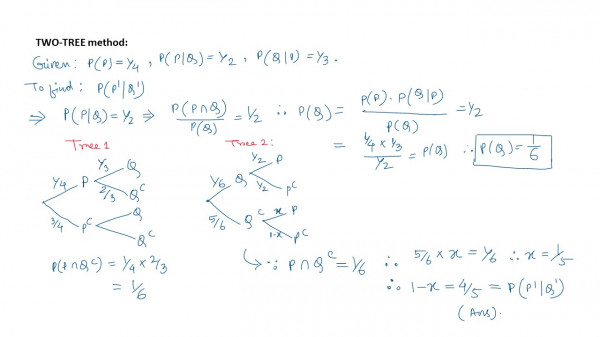 TWO-TREE method:
Given: P(P) = 1/4, P(P|Q) = 1/2, P(Q|P) = 1/3.
To find: P(P'|Q')
⇒ P(P|Q) = 1/2 ⇒ P(P∩Q)/P(Q) = 1/2 ∴ P(Q) = P(P).P(Q|P)/P(Q) = 1/2
= (1/4 × 1/3)/(1/2) = P(Q) ∴ P(Q) = 1/6
Tree 1
1/4 P 1/3 Q
2/3 Q^C
3/4 P^C Q
Q^C
P(P∩Q^C) = 1/4 × 2/3
= 1/6
Tree 2:
1/6 Q 1/2 P
1/2 P^C
5/6 Q^C x P
1-x P^C
↳ ∵ P∩Q^C = 1/6 ∴ 5/6 × x = 1/6 ∴ x = 1/5
∴ 1-x = 4/5 = P(P'|Q')
(Ans).